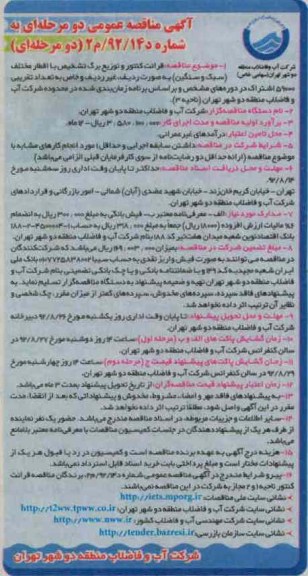 آگهی مناقصه عمومی دو مرحله‌ای به
شماره د۹۲/۱۴/م۲ (دو مرحله‌ای)
شرکت آب و فاضلاب منطقه
دو شهر تهران (سهامی خاص)
۱- موضوع مناقصه: قرائت کنتور و توزیع برگ تشخیص با اقطار مختلف
(سبک و سنگین) به صورت ردیف، غیر ردیف و خاص به تعداد تقریبی
اشتراک در دوره‌های مشخص و بر اساس برنامه زمان‌بندی شده در محدوده شرکت آب
و فاضلاب منطقه دو شهر تهران (ناحیه ۳)
۲- نام دستگاه مناقصه‌گزار: شرکت آب و فاضلاب منطقه دو شهر تهران.
۳- برآورد اولیه مناقصه و مدت اجرای کار: ریال - ۱۲ ماه.
۴- محل تامین اعتبار: درآمدهای غیر عمرانی.
۵- شرایط شرکت در مناقصه: داشتن سابقه اجرایی و حداقل ۱ مورد انجام کارهای مشابه با
موضوع مناقصه (ارائه حداقل دو رضایت‌نامه از سوی کارفرمایان قبلی الزامی می‌باشد)
۶- مهلت و محل دریافت اسناد مناقصه: حداکثر تا پایان وقت اداری روز سه‌شنبه مورخ
۹۲/۸/۱۴
تهران - خیابان کریم خان زند - خیابان شهید عضدی (آبان) شمالی - امور بازرگانی و قراردادهای
شرکت آب و فاضلاب منطقه دو شهر تهران.
۷- مدارک مورد نیاز: الف - معرفی‌نامه معتبر ب- فیش بانکی به مبلغ ۳۰۰٬۰۰۰ ریال به انضمام
مالیات ارزش افزوده (۱۸۰۰۰ ریال) جمعا به مبلغ ۳۱۸٬۰۰۰ ریال به حساب
بانک اقتصاد نوین شعبه میدان هفت تیر کد ۱۸۸ بنام شرکت آب و فاضلاب منطقه دو شهر تهران.
۸- مبلغ تضمین شرکت در مناقصه: بمیزان ریال می‌باشد که شرکت‌کنندگان
در مناقصه می‌توانند به صورت فیش واریز نقدی به حساب سیبا بانک ملی
ایران شعبه مجیدیه کد ۵۲۹ و یا ضمانتنامه بانکی و یا چک بانکی تضمینی بنام شرکت آب و
فاضلاب منطقه دو شهر تهران تهیه و ضمیمه پیشنهاد به دستگاه مناقصه‌گزار تسلیم نمایند. به
پیشنهادهای فاقد سپرده، سپرده‌های مخدوش، سپرده‌های کمتر از میزان مقرر، چک شخصی و
نظایر آن ترتیب اثر داده نخواهد شد.
۹- مهلت و محل تحویل پیشنهاد: تا پایان وقت اداری روز یکشنبه مورخ ۹۲/۸/۲۶ دبیرخانه
شرکت آب و فاضلاب منطقه دو شهر تهران.
۱۰- زمان گشایش پاکت های الف و ب (مرحله اول): ساعت ۱۴ روز دوشنبه مورخ ۹۲/۸/۲۷ در
سالن کنفرانس شرکت آب و فاضلاب منطقه دو شهر تهران.
۱۱- زمان گشایش پاکت‌های پیشنهاد قیمت ج (مرحله دوم): ساعت ۱۴ روز چهارشنبه مورخ
۹۲/۸/۲۹ در سالن کنفرانس شرکت آب و فاضلاب منطقه دو شهر تهران.
۱۲- زمان اعتبار پیشنهاد قیمت مناقصه‌گران: از تاریخ تحویل پیشنهاد بمدت ۳ ماه می‌باشد.
۱۳- به پیشنهادهای فاقد مهر و امضاء، مشروط، مخدوش و پیشنهاداتی که بعد از انقضاء مدت
مقرر در این آگهی واصل شود، مطلقا ترتیب اثر داده نخواهد شد.
۱۴- سایر اطلاعات و جزییات مربوطه، در اسناد مناقصه مندرج می‌باشد. حضور یک نفر نماینده
از طرف هر یک از پیشنهاددهندگان در جلسات کمیسیون مناقصات با معرفی‌نامه معتبر بلامانع
می‌باشد.
۱۵- هزینه درج آگهی به عهده برنده مناقصه است و کمیسیون در رد یا قبول هر یک از
پیشنهادات مختار است و مبلغ پرداختی بابت خرید اسناد قابل استرداد نمی‌باشد.
۱۶- پیرو شرایط مندرج در آگهی مناقصه عمومی شماره برندگان مناقصه قرائت
کنتور ناحیه (و ۲ مجاز به شرکت در این مناقصه نمی‌باشند.
- نشانی سایت ملی مناقصات: http://iets.mporg.ir
- نشانی سایت شرکت آب و فاضلاب منطقه دو شهر تهران: http://t2ww.tpww.co.ir
- نشانی سایت شرکت مهندسی آب و فاضلاب کشور: http://www.nww.ir
- نشانی سایت سازمان بازرسی: http://tender.bazresi.ir
شرکت آب و فاضلاب منطقه دو شهر تهران